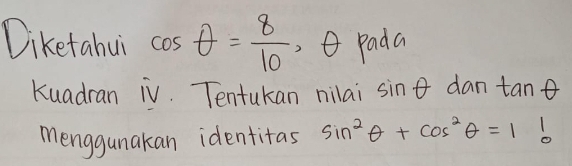 Diketahui cos θ = 8/10, θ pada
Kuadran iv. Tentukan nilai sin θ dan tan θ
menggunakan identitas sin² θ + cos² θ = 1 !